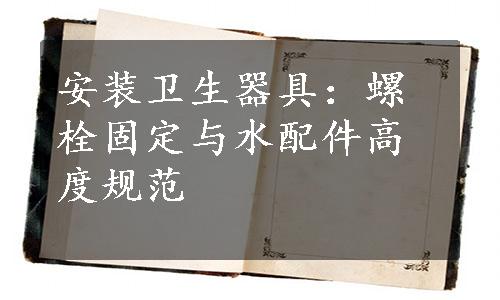 安装卫生器具：螺
栓固定与水配件高
度规范